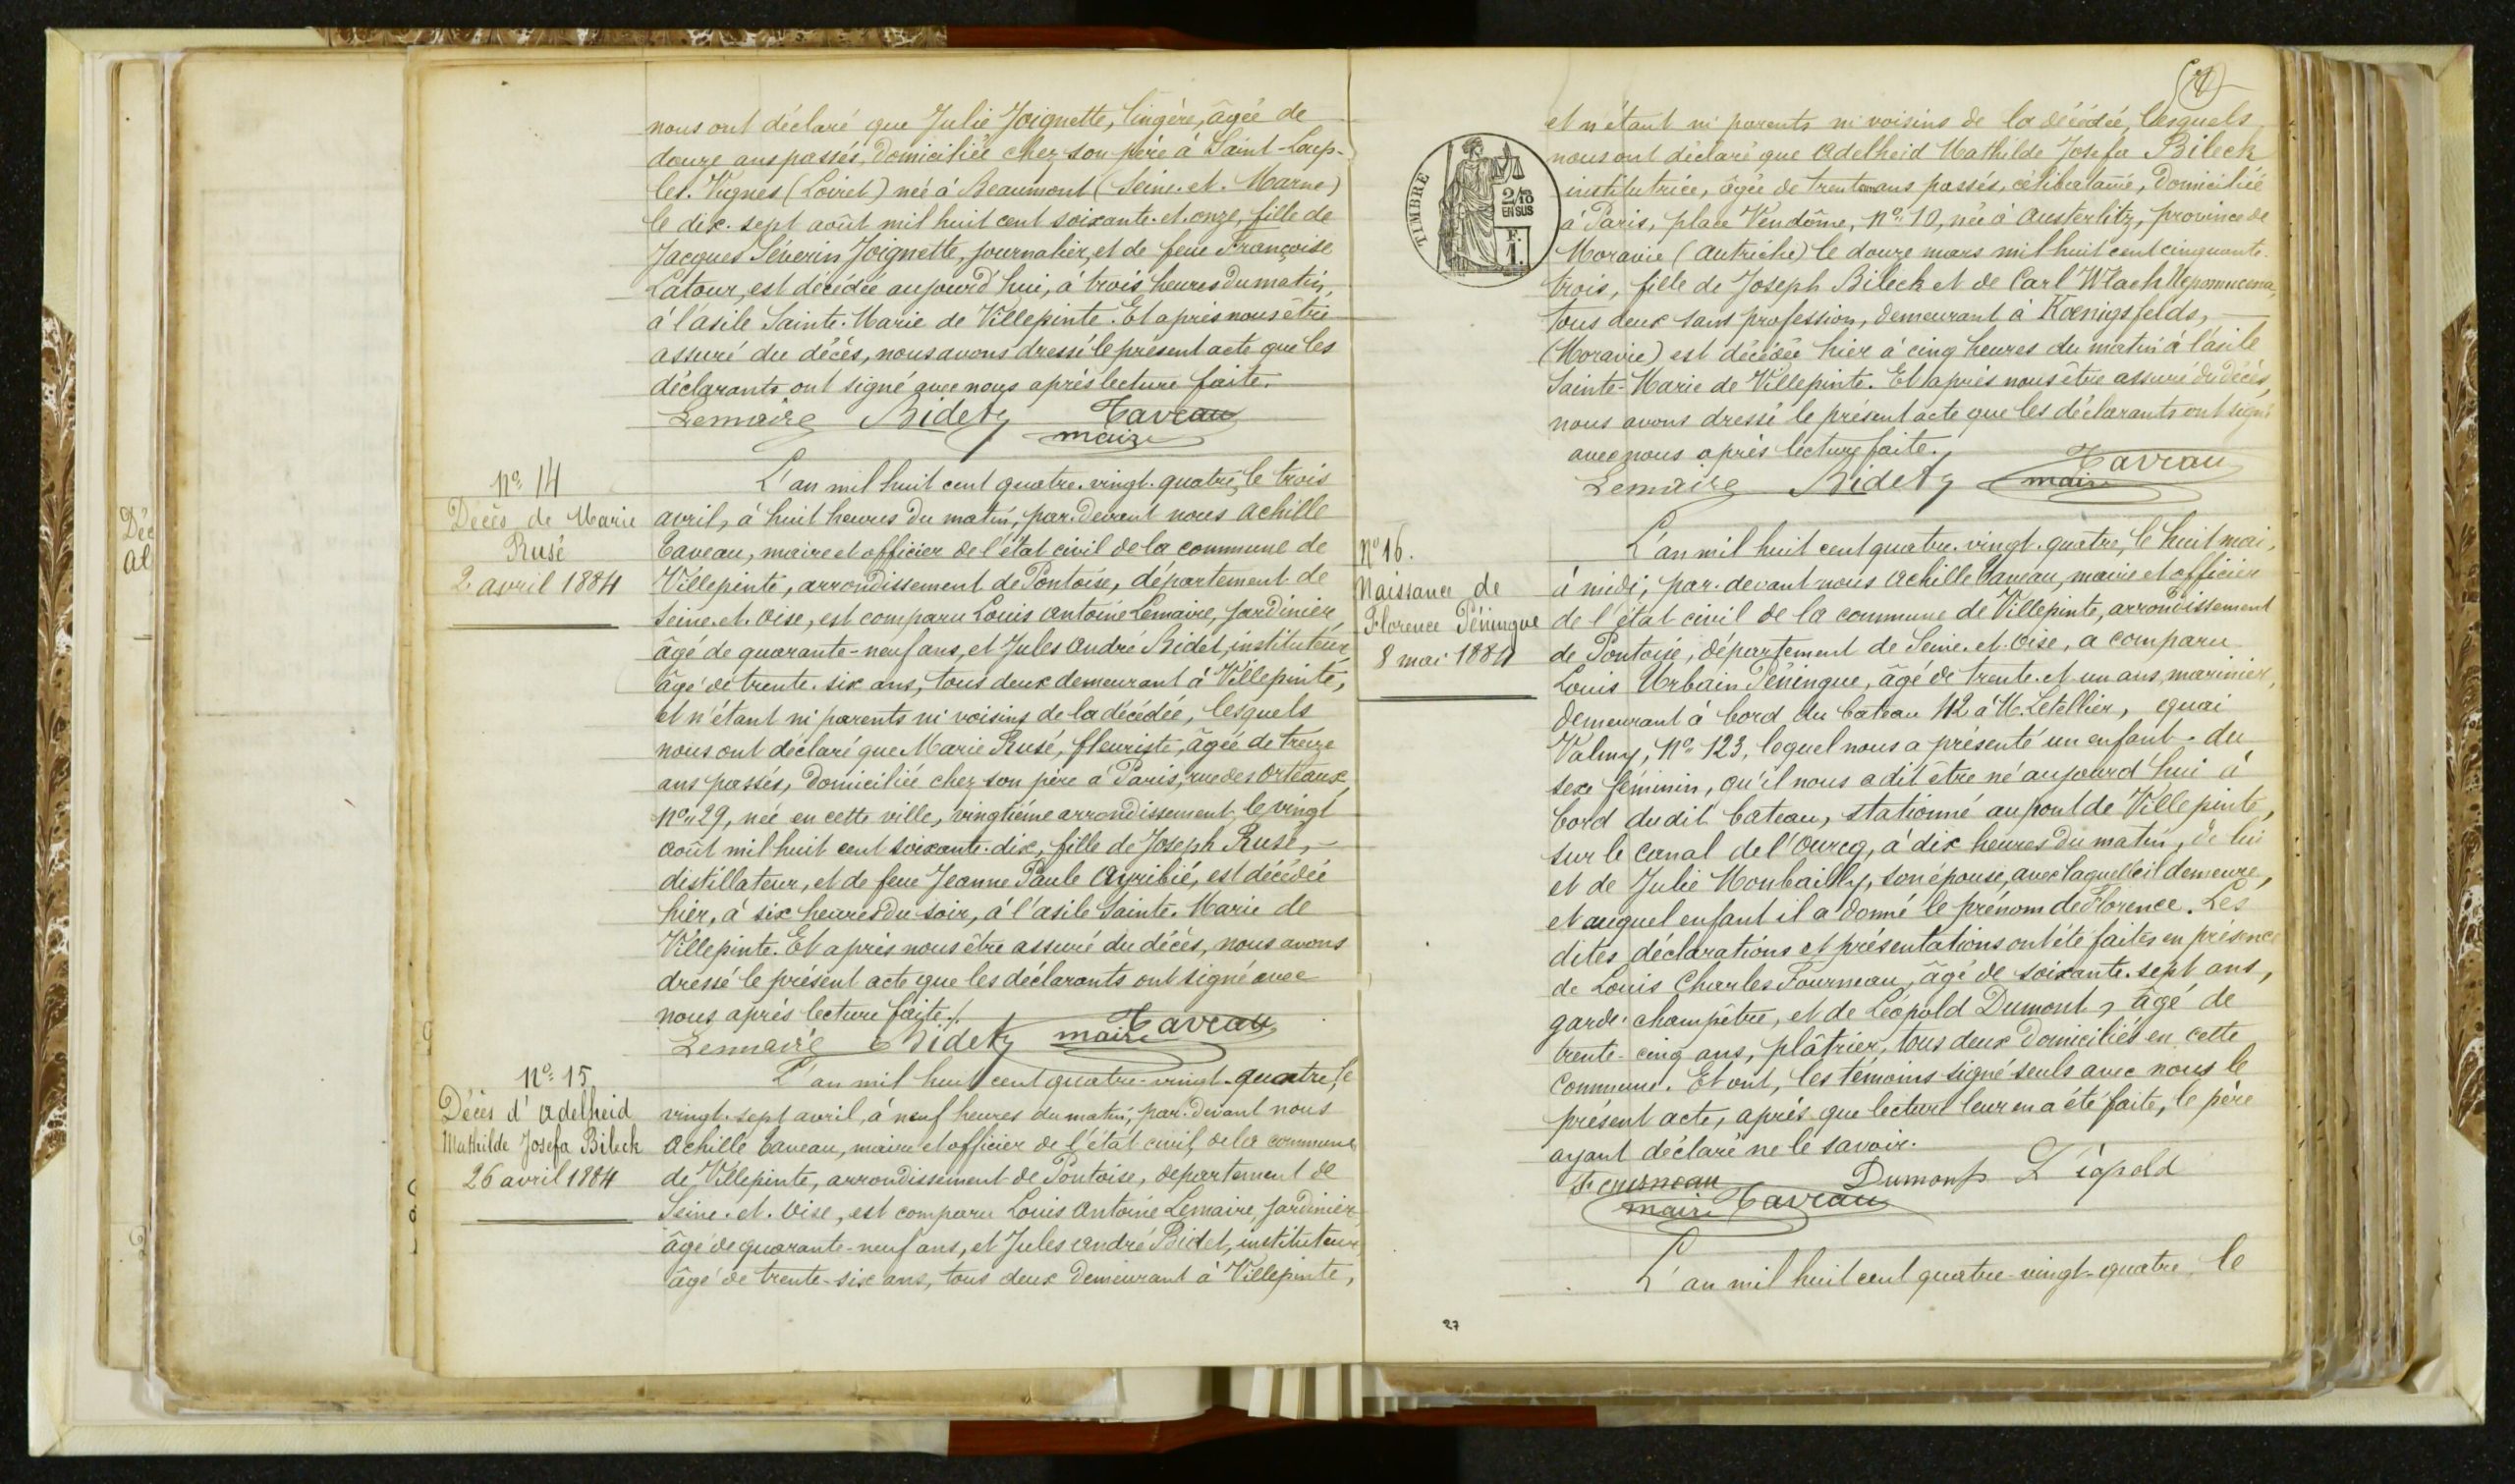 nous ont déclaré que Julie Joignette, lingère, âgée de
douze ans passés, domiciliée chez son père à Saint-Loup-
les-Vignes (Loiret) née à Beaumont (Seine-et-Marne)
le dix-sept août mil huit cent soixante-et-onze, fille de
Jacques Séverin Joignette, journalier, et de feue Françoise
Latour, est décédée aujourd'hui, à trois heures du matin,
à l'asile Sainte-Marie de Villepinte. Et après nous être
assuré du décès, nous avons dressé le présent acte que les
déclarants ont signé avec nous après lecture faite.
Lemaire Bidet Taveau
maire
No 14
Décès de Marie
Rusé
2 avril 1884
L'an mil huit cent quatre-vingt-quatre, le trois
avril, à huit heures du matin, par-devant nous Achille
Taveau, maire et officier de l'état civil de la commune de
Villepinte, arrondissement de Pontoise, département de
Seine-et-Oise, est comparu Louis Antoine Lemaire, jardinier,
âgé de quarante-neuf ans, et Jules André Bidet, instituteur,
âgé de trente-six ans, tous deux demeurant à Villepinte,
et n'étant ni parents ni voisins de la décédée, lesquels
nous ont déclaré que Marie Rusé, fleuriste, âgée de treize
ans passés, domiciliée chez son père à Paris, rue des Orteaux,
No 29, née en cette ville, vingtième arrondissement, le vingt
août mil huit cent soixante-dix, fille de Joseph Rusé,
distillateur, et de feue Jeanne Paule Ayribié, est décédée
hier, à six heures du soir, à l'asile Sainte-Marie de
Villepinte. Et après nous être assuré du décès, nous avons
dressé le présent acte que les déclarants ont signé avec
nous après lecture faite./.
Lemaire Bidet maire Taveau
No 15
Décès d'Adelheid
Mathilde Josefa Bileck
26 avril 1884
L'an mil huit cent quatre-vingt-quatre, le
vingt-sept avril, à neuf heures du matin, par-devant nous
Achille Taveau, maire et officier de l'état civil de la commune
de Villepinte, arrondissement de Pontoise, département de
Seine-et-Oise, est comparu Louis Antoine Lemaire, jardinier
âgé de quarante-neuf ans, et Jules André Bidet, instituteur,
âgé de trente-six ans, tous deux demeurant à Villepinte,
TIMBRE
2/10
EN SUS
F.
1.
et n'étant ni parents ni voisins de la décédée, lesquels
nous ont déclaré que Adelheid Mathilde Josefa Bileck
institutrice, âgée de trente ans passés, célibataire, domiciliée
à Paris, place Vendôme, No 10, née à Austerlitz, province de
Moravie (Autriche) le douze mars mil huit cent cinquante-
trois, fille de Joseph Bileck et de Carl Wlach Nepomucena,
tous deux sans profession, demeurant à Kœnigsfelds,
(Moravie) est décédée hier à cinq heures du matin à l'asile
Sainte-Marie de Villepinte. Et après nous être assuré du décès,
nous avons dressé le présent acte que les déclarants ont signé
avec nous après lecture faite.
Lemaire Bidet Taveau
maire
No 16.
Naissance de
Florence Péningue
8 mai 1884
L'an mil huit cent quatre-vingt-quatre, le huit mai,
à midi, par-devant nous Achille Taveau, maire et officier
de l'état civil de la commune de Villepinte, arrondissement
de Pontoise, département de Seine-et-Oise, a comparu
Louis Urbain Péningue, âgé de trente-et-un ans, marinier,
demeurant à bord du bateau 112 à M. Letellier, quai
Valmy, No 123, lequel nous a présenté un enfant du
sexe féminin, qu'il nous a dit être né aujourd'hui à
bord dudit bateau, stationné au pont de Villepinte,
sur le canal de l'Ourcq, à dix heures du matin, de lui
et de Julie Monbailly, son épouse, avec laquelle il demeure,
et auquel enfant il a donné le prénom de Florence. Les
dites déclarations et présentations ont été faites en présence
de Louis Charles Fourneau, âgé de soixante-sept ans,
garde-champêtre, et de Léopold Dumont, âgé de
trente-cinq ans, plâtrier, tous deux domiciliés en cette
commune. Et ont, les témoins signé seuls avec nous le
présent acte, après que lecture leur en a été faite, le père
ayant déclaré ne le savoir.
Fourneau Dumont Léopold
maire Taveau
L'an mil huit cent quatre-vingt-quatre, le
27